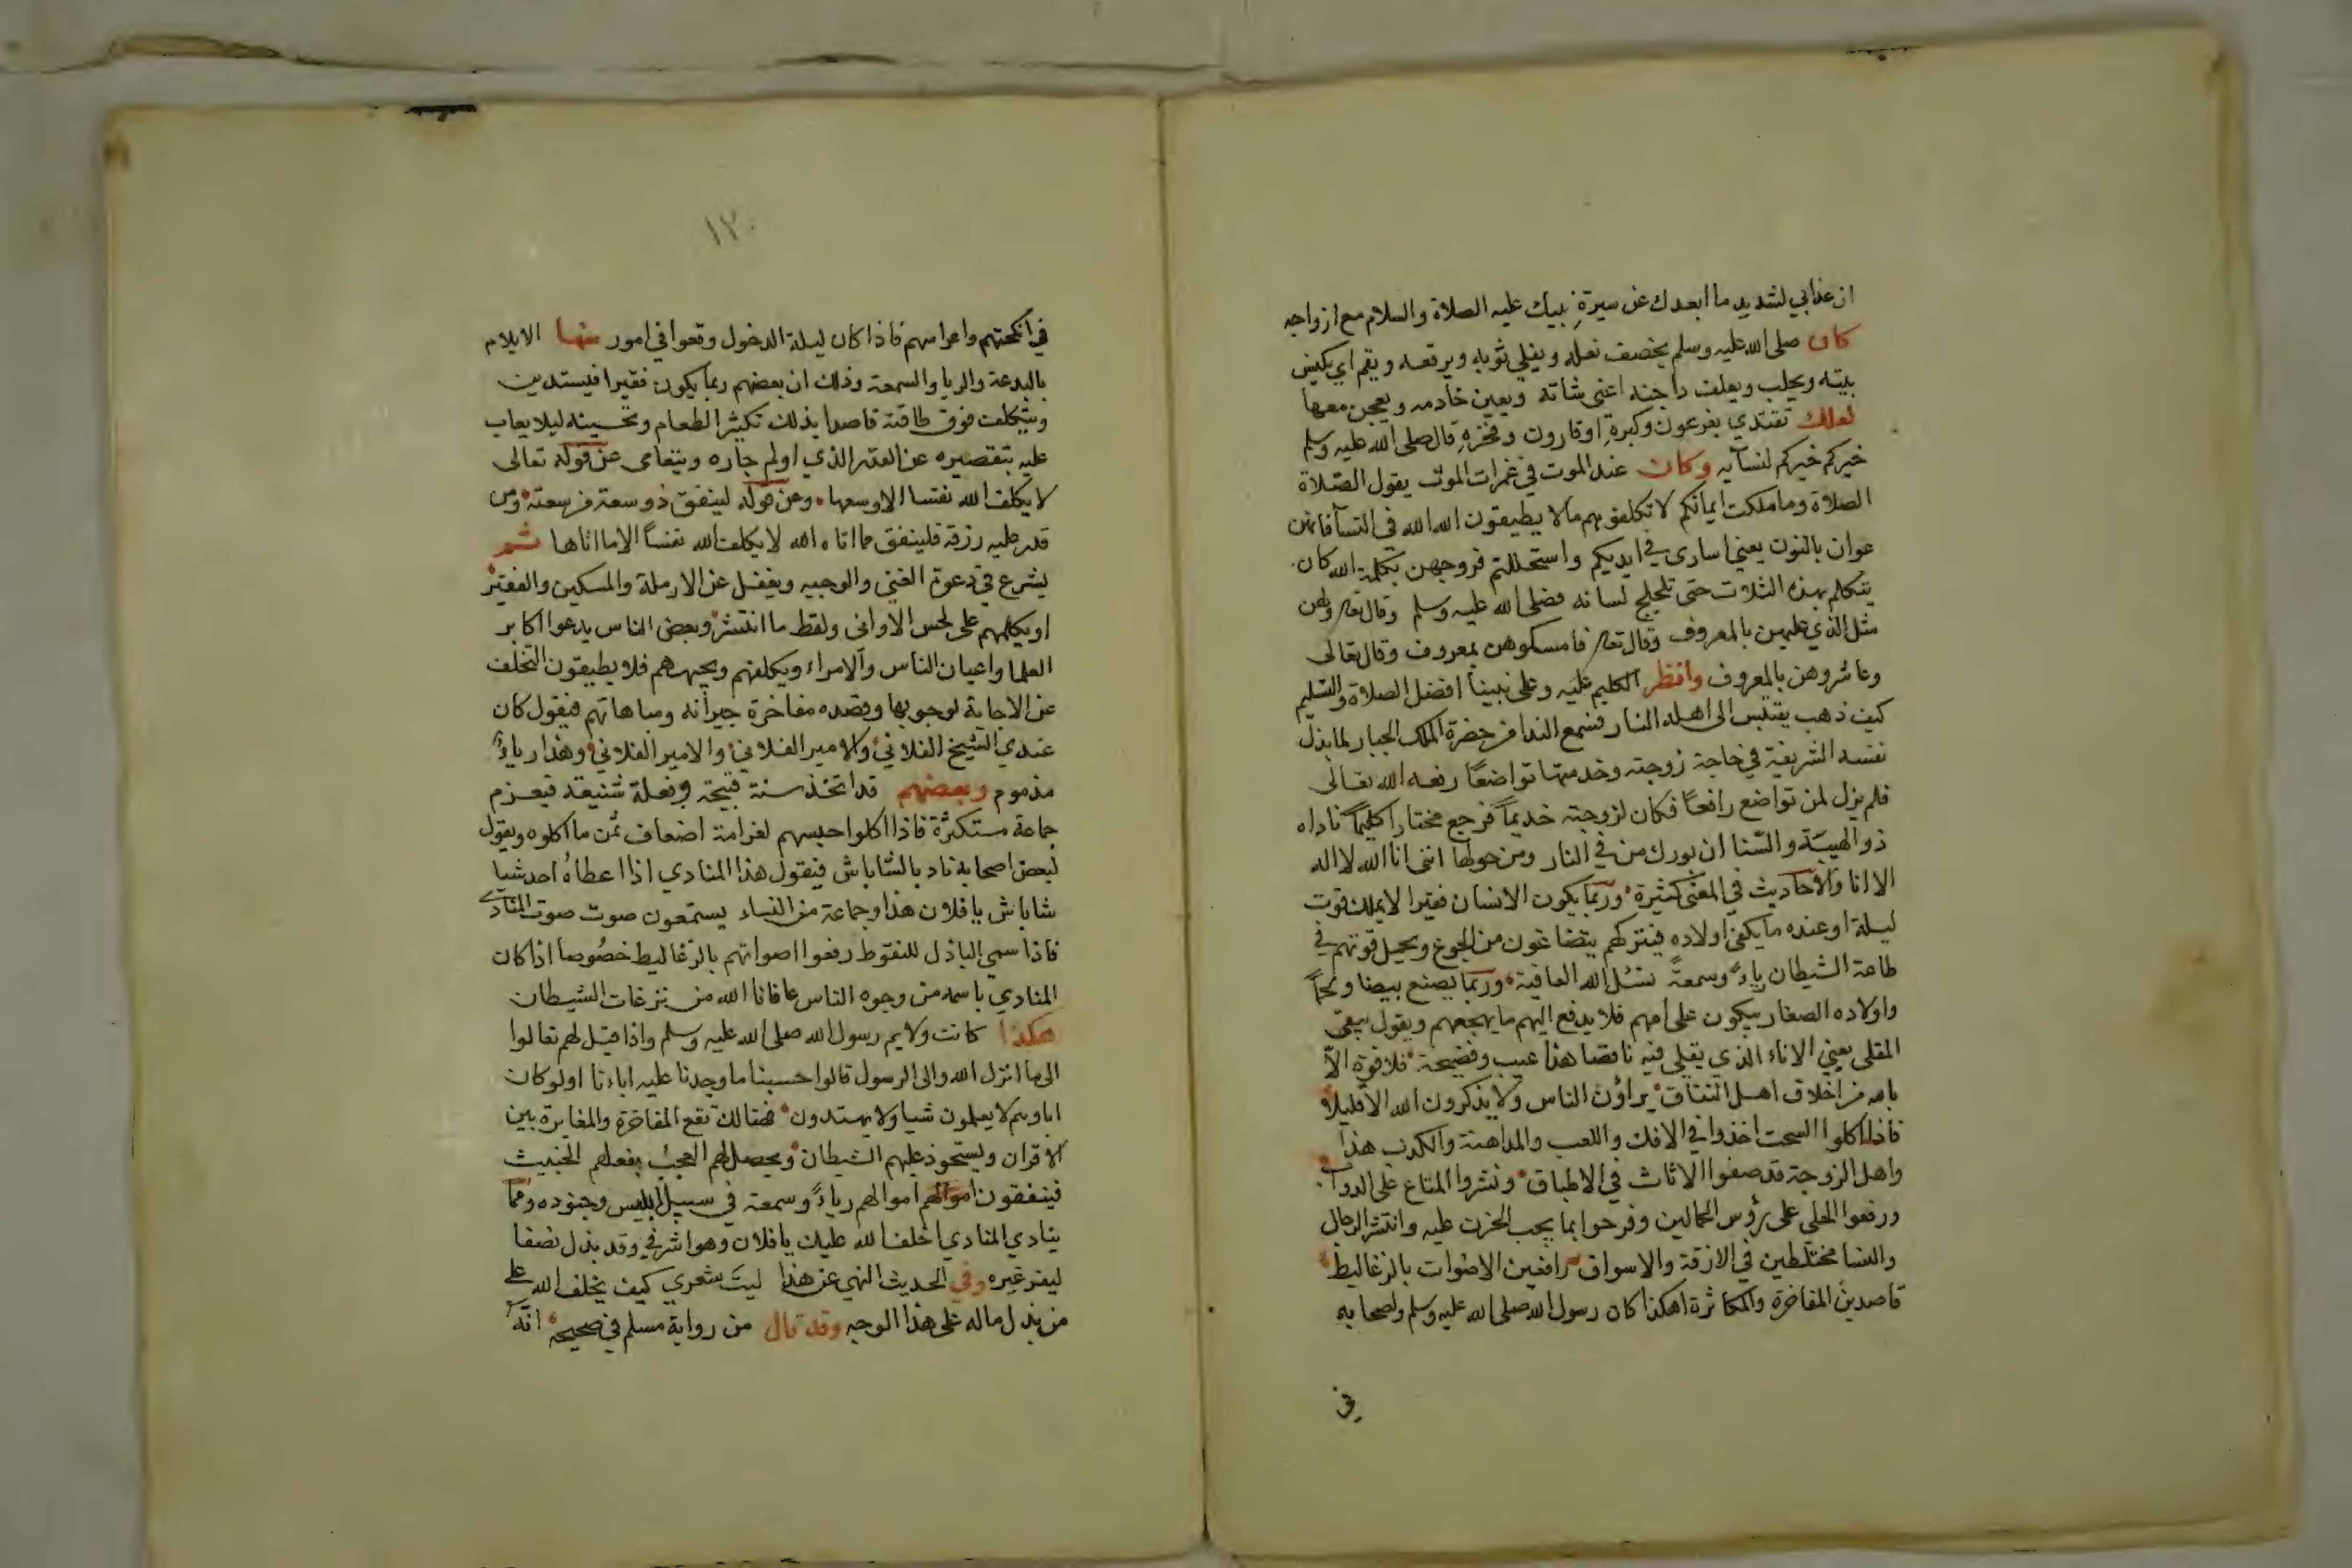 ان عذابي لشديد ما ابعدك عن سيرة نبيك عليه الصلاة والسلام مع ازواجه
كان صلى الله عليه وسلم يخصف نعله ويفلي ثوبه ويرقعه ويقم اي يكنس
بيته ويحلب ويعلف داجنه اعني شاته ويعين خادمه ويعجن معها
لعلك تقتدي بفرعون وكبره اوقارون وفخره قال صلى الله عليه وسلم
خيركم خيركم لنسآيه وكان عند الموت في غمرات الموت يقول الصلاة
الصلاة وما ملكت ايمانكم لا تكلفوهم مالا يطيقون الله الله في النسآ فانهن
عوان بالنون يعني اسارى في ايديكم واستحللتم فروجهن بكلمة الله كان
يتكلم بهذه الثلاث حتى تلجلج لسانه فصلى الله عليه وسلم وقال تعا ولهن
مثل الذي عليهن بالمعروف وقال تعا فامسكوهن بمعروف وقال تعالى
وعاشروهن بالمعروف وانظر الكليم عليه وعلى نبينا افضل الصلاة والتسليم
كيف ذهب يقتبس الى اهله النار فسمع الندا من حضرة الملك الجبار لما بذل
نفسه الشريفة في حاجة زوجته وخدمتها تواضعًا رفعه الله تعالى
فلم يزل لمن تواضع رافعًا فكان لزوجته خديمًا فرجع مختارا كليمًا ناداه
ذو الهيبة والسنا ان بورك من في النار ومن حولها انني انا الله لا اله
الا انا والاحاديث في المعنى كثيرة وربما يكون الانسان فقيرا لا يملك قوت
ليلة او عنده ما يكفي اولاده فيتركهم يتضاغون من الجوع ويجعل قوتهم في
طاعة الشيطان رياءً وسمعةً نسئل الله العافية وربما يصنع بيضا ولحمًا
واولاده الصغار يبكون على امهم فلا يدفع اليهم ما يهجعهم ويقول يبقى
المقلى يعني الاناء الذي يقلى فيه ناقصا هذا عيب وفضيحة فلا قوة الا
بالله من اخلاق اهل النفاق يراؤن الناس ولا يذكرون الله الا قليلا
فاذا اكلوا السحت اخذوا في الافك واللعب والمداهنة والكذب هذا
واهل الزوجة قد صفوا الاثاث في الاطباق ونشروا المتاع على الدواب
ورفعوا الحلي على رؤس الحمالين وفرحوا بما يجب الحزن عليه وانتشر الرجال
والنسا مختلطين في الازقة والاسواق رافعين الاصوات بالزغاليط
قاصدين المفاخرة والمكاثرة اهكذا كان رسول الله صلى الله عليه وسلم واصحابه
في
١٢٠
في انكحتهم واعراسهم فاذا كان ليلة الدخول وقعوا في امور منها الايلام
بالبدعة والريا والسمعة وذلك ان بعضهم ربما يكون فقيرا فيستدين
ويتكلف فوق طاقته قاصدا بذلك تكثير الطعام وتحسينه ليلا يعاب
عليه بتقصيره عن القدر الذي اولم جاره ويتعامى عن قوله تعالى
لا يكلف الله نفسا الا وسعها وعن قوله لينفق ذو سعة من سعته ومن
قدر عليه رزقه فلينفق مما اتاه الله لا يكلف الله نفسًا الا ما اتاها ثم
يشرع في دعوة الغني والوجيه ويغفل عن الارملة والمسكين والفقير
او يكلهم على لحس الاواني ولقط ما انتثر وبعض الناس يدعوا اكابر
العلما واعيان الناس والامراء ويكلفهم ويجيبهم فلا يطيقون التخلف
عن الاجابة لوجوبها وقصده مفاخرة جيرانه ومباهاتهم فيقول كان
عندي الشيخ الفلاني والامير الفلاني والامير الفلاني وهذا رياءٌ
مذموم وبعضهم قد اتخذ سنة قبيحة وفعلة شنيعة فيعزم
جماعة مستكثرة فاذا اكلوا حبسهم لغرامة اضعاف ثمن ما اكلوه ويقول
لبعض اصحابه ناد بالشاباش فيقول هذا المنادي اذا اعطاهُ احد شيا
شاباش يا فلان هذا وجماعة من النساء يستمعون صوت صوت المنادى
فاذا سمي الباذل للنقوط رفعوا اصواتهم بالزغاليط خصوصا اذا كان
المنادي باسمه من وجوه الناس عافانا الله من نزغات الشيطان
هكذا كانت ولايم رسول الله صلى الله عليه وسلم واذا قيل لهم تعالوا
الى ما انزل الله والى الرسول قالوا حسبنا ما وجدنا عليه اباءنا اولو كان
اباوهم لا يعلمون شيا ولا يهتدون فهنالك تقع المفاخرة والمغايرة بين
الاقران ويستحوذ عليهم الشيطان ويحصل لهم العجب بفعلهم الخبيث
فينفقون اموالهم اموالهم رياءً وسمعة في سبيل ابليس وجنوده ومما
ينادي المنادي اخلف الله عليك يا فلان وهو اشرفي وقد بذل نصفا
ليغر غيره وفي الحديث النهي عن هذا ليت شعري كيف يخلف الله على
من بذل ماله على هذا الوجه وقد قال من رواية مسلم في صحيحه انه